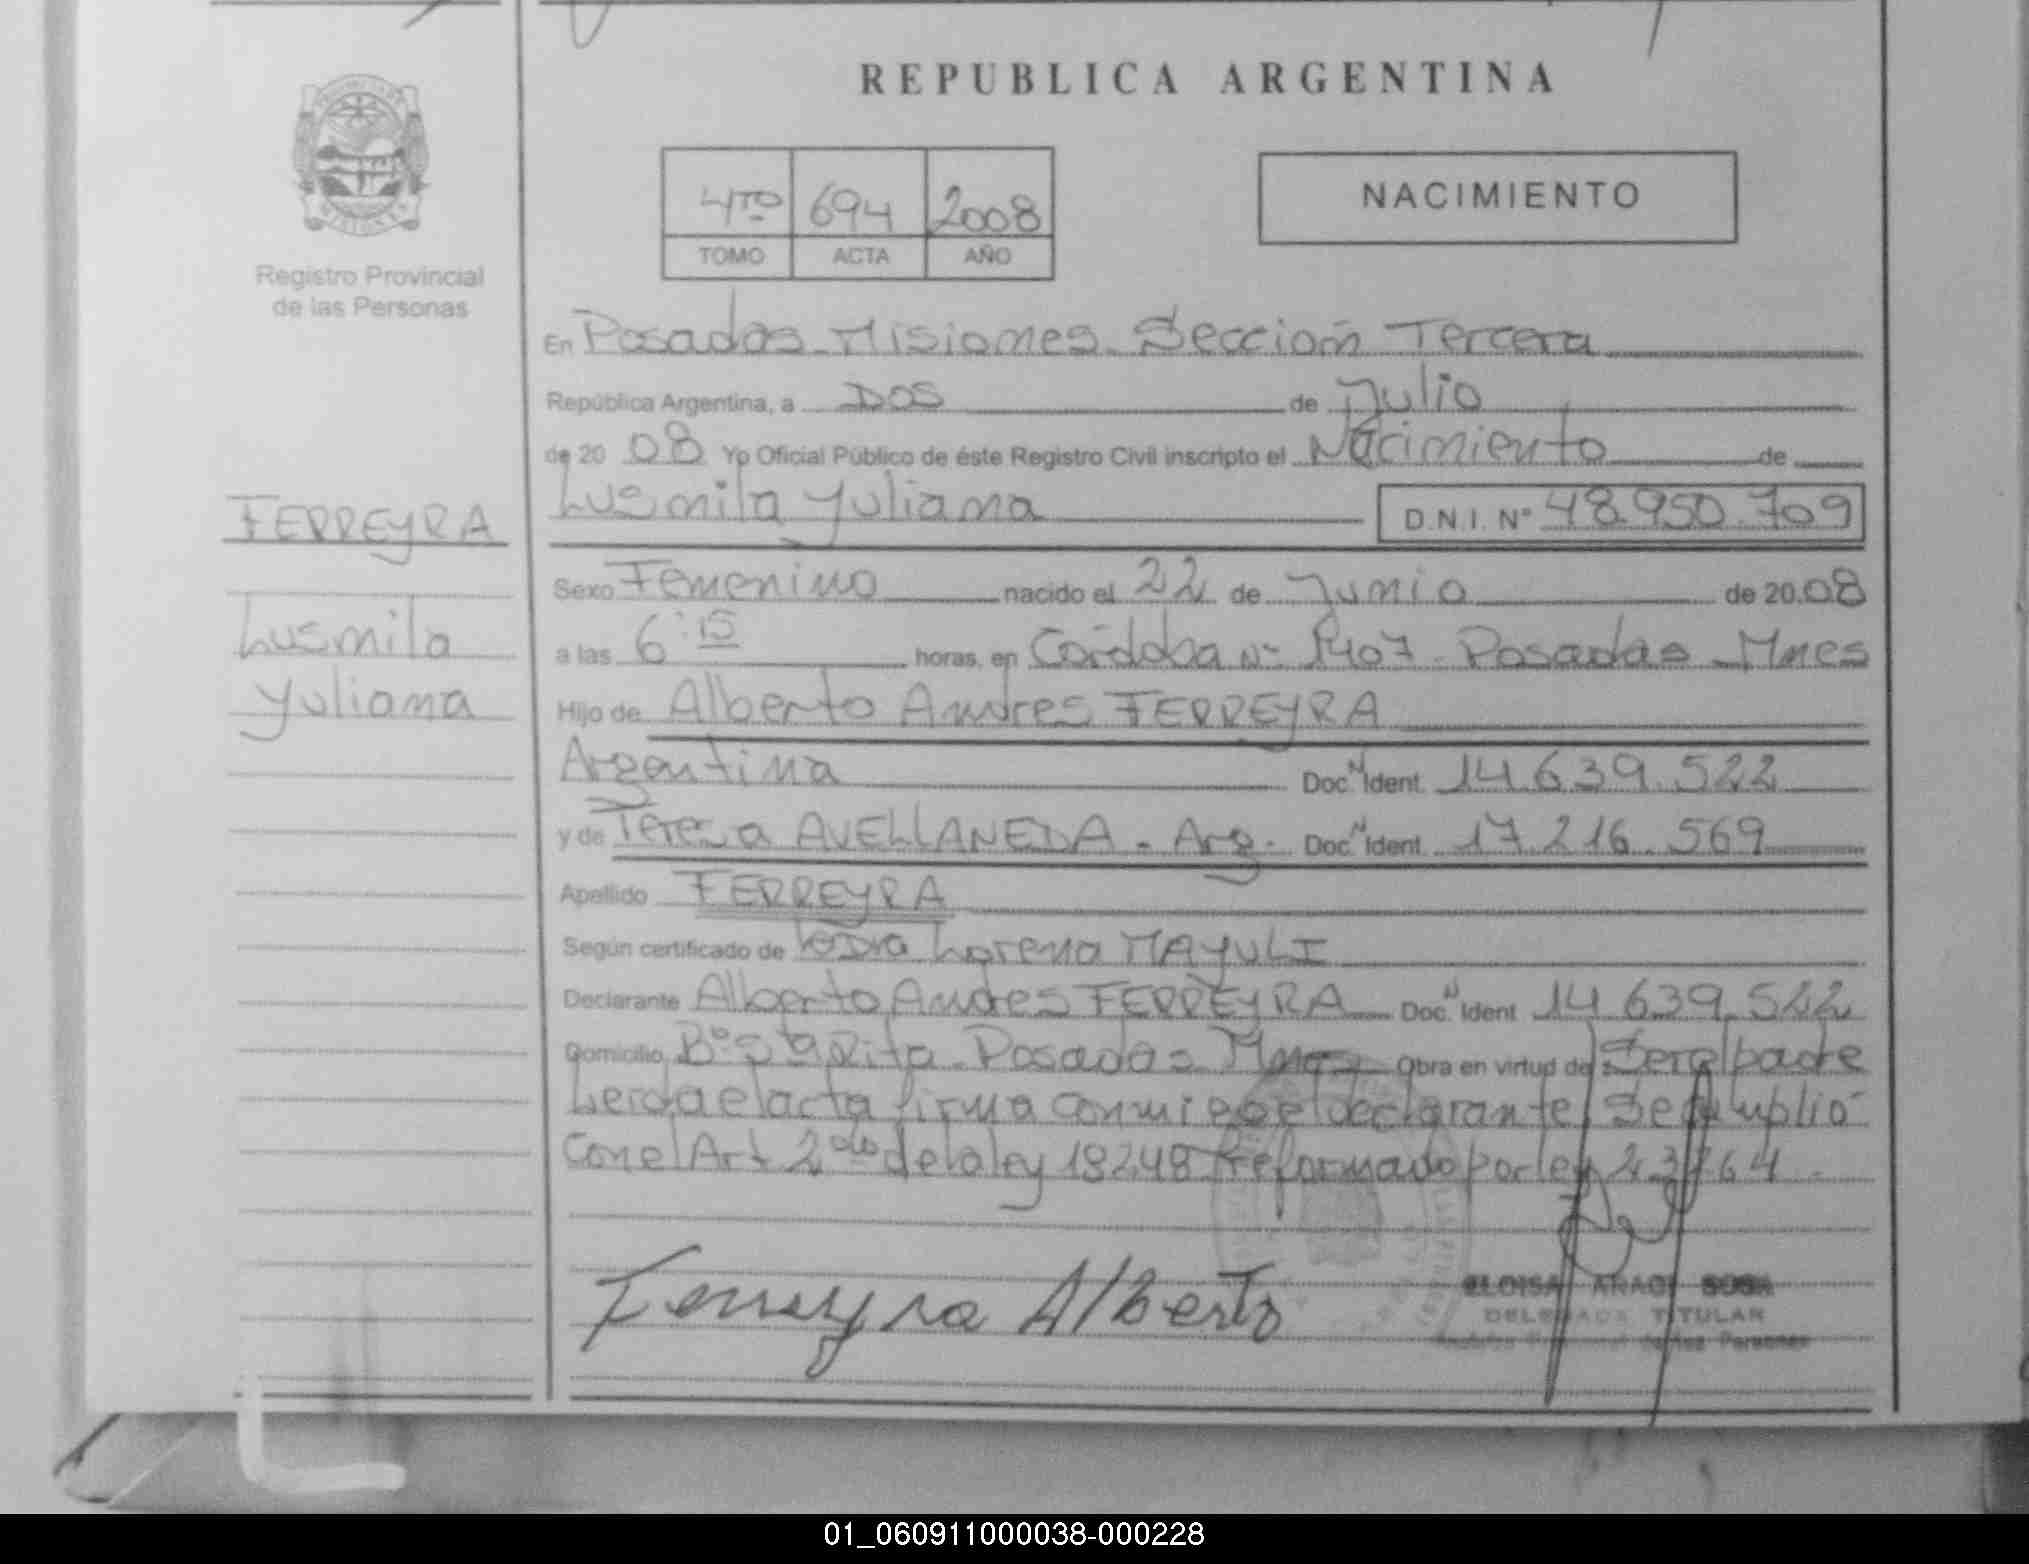 REPUBLICA ARGENTINA
4TO 694 2008
TOMO ACTA AÑO
NACIMIENTO
Registro Provincial
de las Personas
FERREYRA
Lusmila
Yuliana
En Posadas Misiones Sección Tercera
República Argentina, a Dos de Julio
de 20 08 Yo Oficial Público de éste Registro Civil inscripto el Nacimiento de
Lusmila Yuliana D.N.I. Nº 48.950.709
Sexo Femenino nacido el 22 de Junio de 20 08
a las 6:15 horas, en Córdoba Nº 1407 Posadas Mnes
Hijo de Alberto Andres FERREYRA
Argentina Doc. N Ident. 14.639.522
y de Teresa AVELLANEDA - Arg. Doc. N Ident. 17.216.569
Apellido FERREYRA
Según certificado de Dra Lorena MAYULI
Declarante Alberto Andres FERREYRA Doc. N Ident 14.639.522
Domicilio Bº Sta Rita - Posadas Mnes Obra en virtud de Ser el padre
Leida el acta firma conmigo el declarante. Se cumplió
con el Art 2do de la ley 18248 reformado por ley 23764
Ferreyra Alberto
ELOISA SOSA
DELEGADA TITULAR
de las Personas
01_060911000038-000228